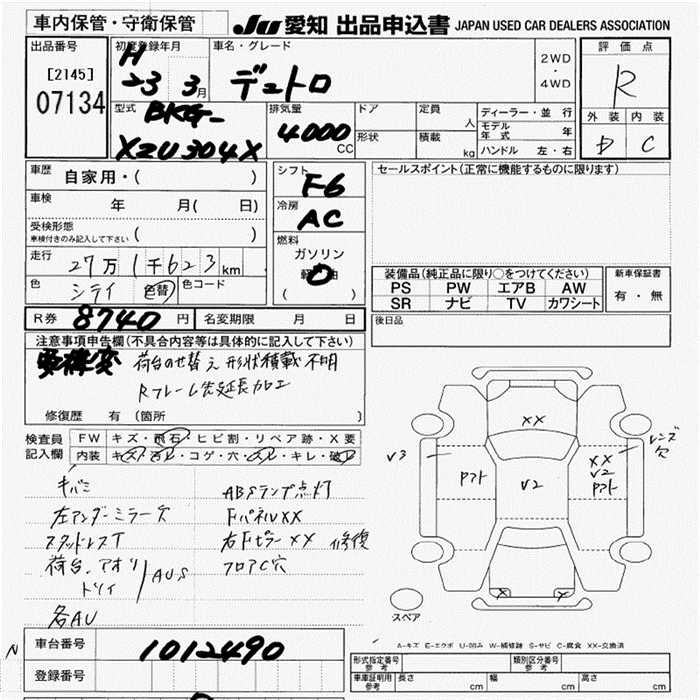 車内保管・守衛保管
JU 愛知 出品申込書 JAPAN USED CAR DEALERS ASSOCIATION
出品番号 初度登録年月 車名・グレード 評価点
[2145] H 2WD
07134 23 3月 デュトロ ・ R
4WD
型式 BKG- 排気量 ドア 定員 ディーラー・並行 外装 内装
XZU304X 4000 CC 形状 積載 人 モデル年式 年 D C
kg ハンドル 左・右
車歴 自家用・( ) シフト F6 セールスポイント(正常に機能するものに限ります)
車検 年 月( 日) 冷房 AC
受検形態 車検付きのみ記入して下さい ( ) 燃料
走行 27万1千623km ガソリン
色 シロイ 色替 色コード 軽油
( )
装備品(純正品に限り○をつけてください) 新車保証書
PS PW エアB AW 有・無
SR ナビ TV カワシート
R券 8740円 名変期限 月 日 後日品
注意事項申告欄(不具合内容等は具体的に記入して下さい)
要構変 荷台のせ替え 形状積載不明
Rフレーム先延長加工
修復歴 有 (箇所 )
検査員 FW キズ・飛石・ヒビ割・リペア跡・X要
記入欄 内装 キズ・汚レ・コゲ・穴・スレ・キレ・破レ
キバミ ABSランプ点灯
左アンダーミラー欠 FパネルXX
スタッドレスT 右FピラーXX 修復
荷台、アオリ フロアC穴
トリイ AUS
各AU
XX
V3 XX レンズ欠
アフト V2 V2
アフト
X X
スペア
A-キズ E-エクボ U-凹み W-補修跡 S-サビ C-腐食 XX-交換済
N 車台番号 1012490
登録番号
形式指定番号 参考 類別区分番号 参考
車庫証明用 参考 長さ cm 幅 cm 高さ cm